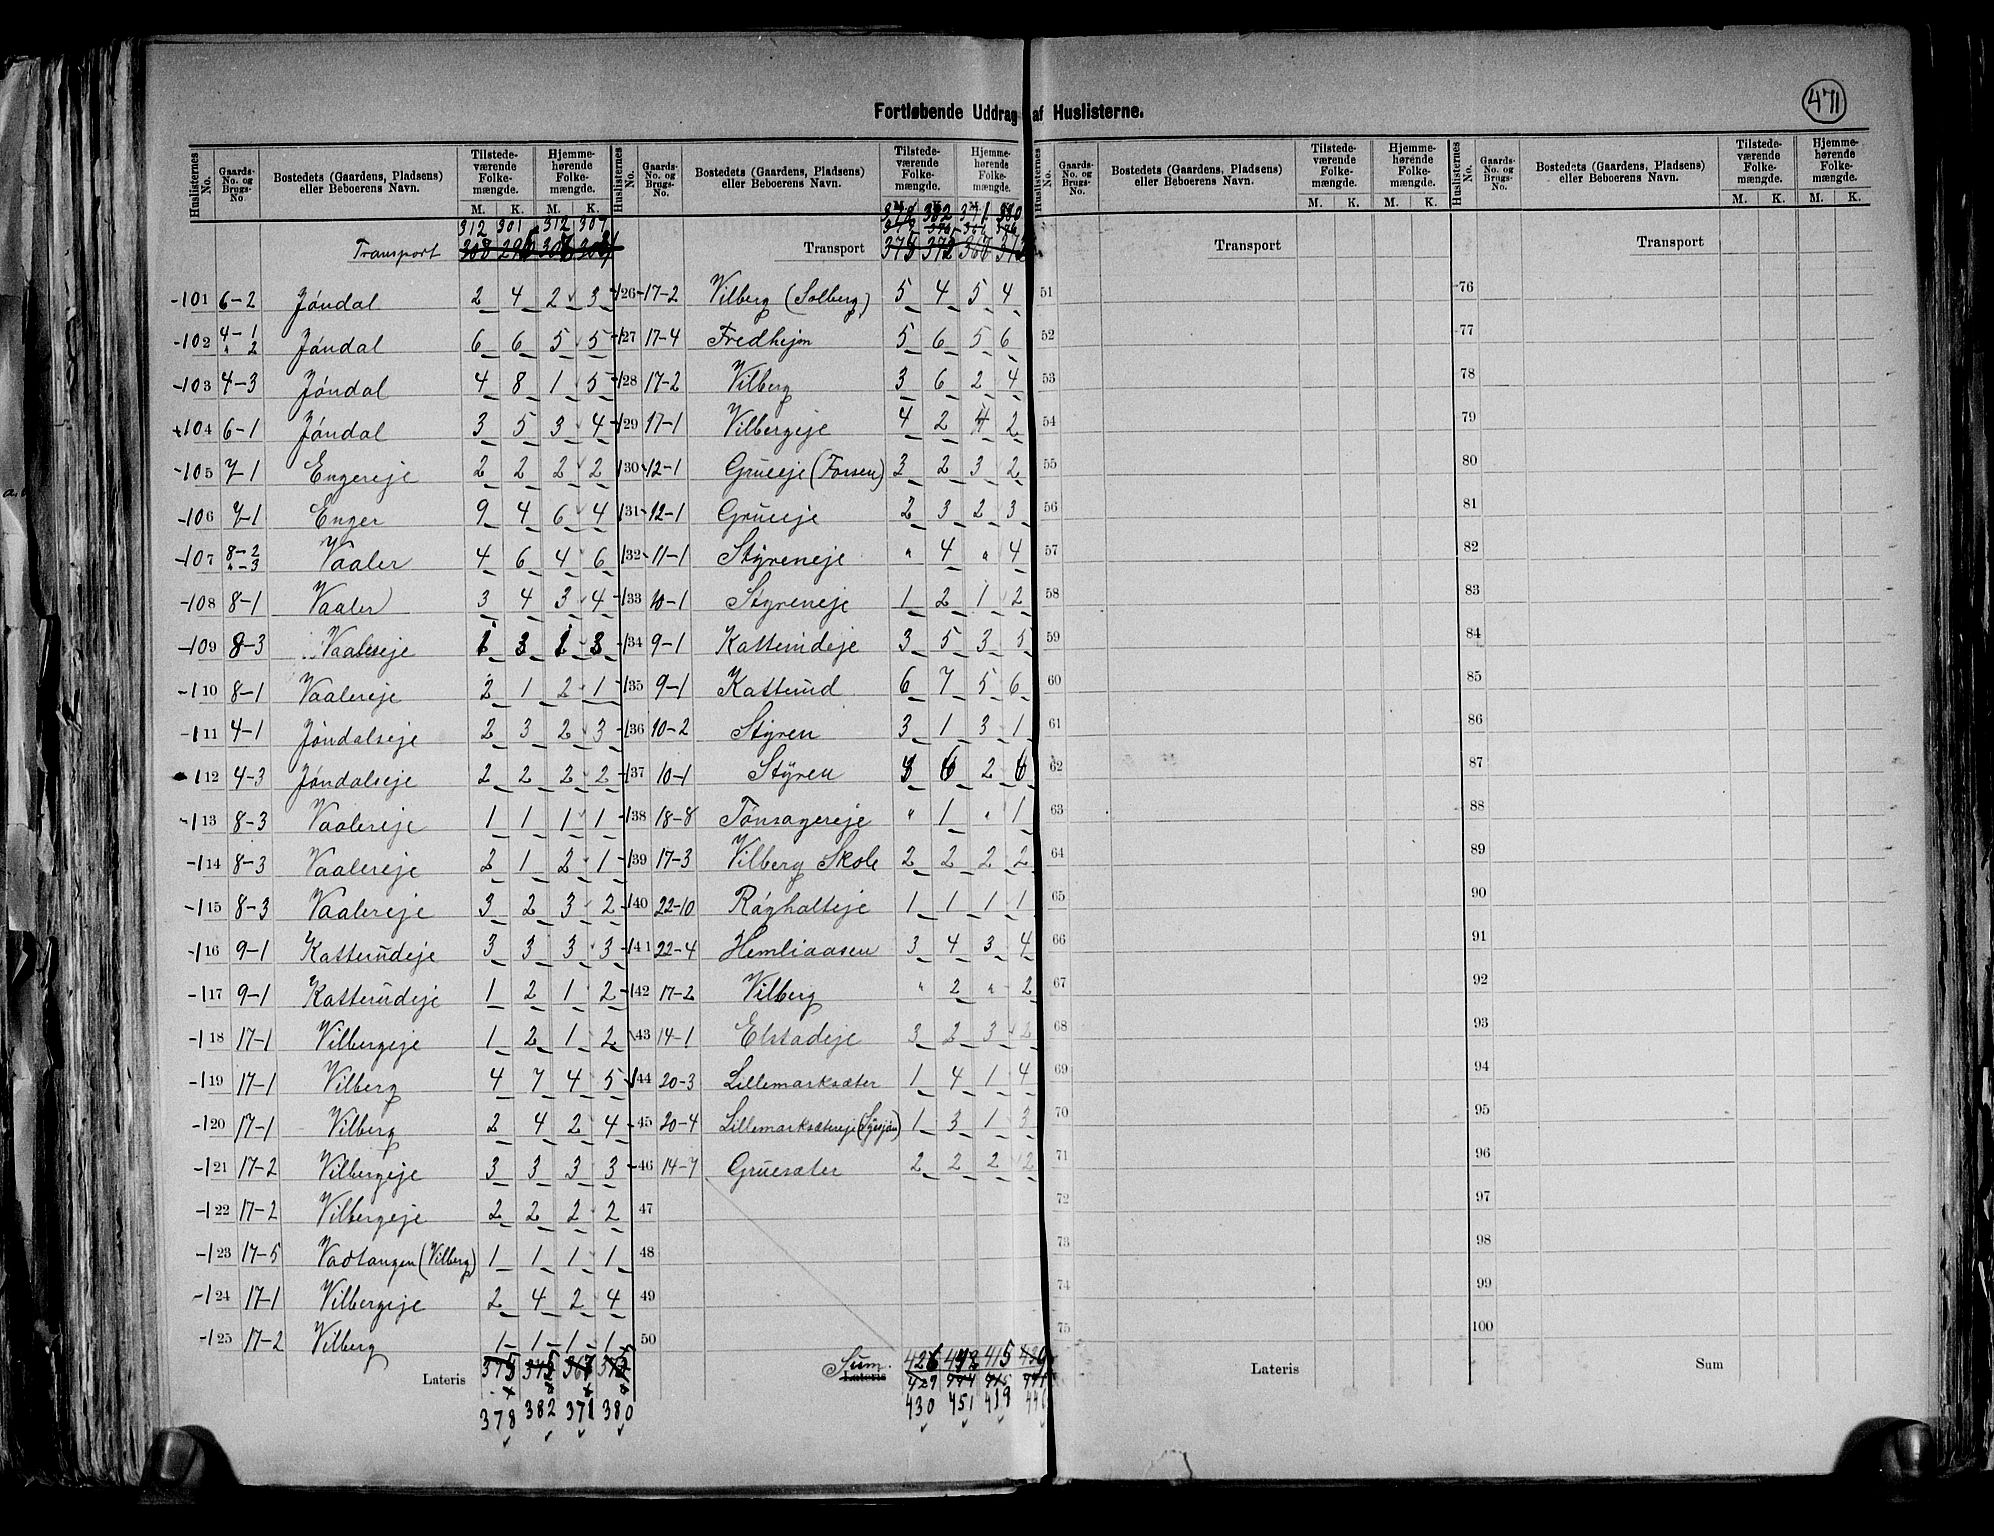 471
Fortløbende Uddrag af Huslisterne.
Huslisternes No. Gaards-No. og Brugs-No Bostedets (Gaardens, Pladsens) eller Beboerens Navn. Tilstedeværende Folkemængde. Hjemmehørende Folkemængde.
M. K. M. K.
312 301 312 307
Transport
101 6-2 Jøndal 2 4 2 3
102 4-1 " 2 Jøndal 6 6 5 5
103 4-3 Jøndal 4 8 1 5
104 6-1 Jøndal 3 5 3 4
105 7-1 Engereje 2 2 2 2
106 7-1 Enger 9 4 6 4
107 8-2 "-3 Vaaler 4 6 4 6
108 8-1 Vaaler 3 4 3 4
109 8-3 Vaalereje 1 3 1 3
110 8-1 Vaalereje 2 1 2 1
111 4-1 Jøndalseje 2 3 2 3
112 4-3 Jøndalseje 2 2 2 2
113 8-3 Vaalereje 1 1 1 1
114 8-3 Vaalereje 2 1 2 1
115 8-3 Vaalereje 3 2 3 2
116 9-1 Katterudeje 3 3 3 3
117 9-1 Katterudeje 1 2 1 2
118 17-1 Vilbergeje 1 2 1 2
119 17-1 Vilberg 4 7 4 5
120 17-1 Vilberg 2 4 2 4
121 17-2 Vilbergeje 3 3 3 3
122 17-2 Vilbergeje 2 2 2 2
123 17-5 Vadtangen (Vilberg) 1 1 1 1
124 17-1 Vilbergeje 2 4 2 4
125 17-2 Vilberg 1 1 1 1
Lateris
378 382 371 380
Huslisternes No. Gaards-No. og Brugs-No. Bostedets (Gaardens, Pladsens) eller Beboerens Navn. Tilstedeværende Folkemængde. Hjemmehørende Folkemængde.
378 382 371 380
Transport
126 17-2 Vilberg (Solberg) 5 4 5 4
127 17-4 Fredhejm 5 6 5 6
128 17-2 Vilberg 3 6 2 4
129 17-1 Vilbergeje 4 2 4 2
130 12-1 Grueeje (Fossen) 3 2 3 2
131 12-1 Grueeje 2 3 2 3
132 11-1 Styreneje " 4 " 4
133 10-1 Styreneje 1 2 1 2
134 9-1 Katterudeje 3 5 3 5
135 9-1 Katterud 6 7 5 6
136 10-2 Styren 3 1 3 1
137 10-1 Styren 6 2 6
138 18-8 Tønsagereje " 1 " 1
139 17-3 Vilberg Skole 2 2 2 2
140 22-10 Røgholteje 1 1 1 1
141 22-4 Hemliaasen 3 4 3 4
142 17-2 Vilberg " 2 " 2
143 14-1 Elstadeje 3 2 3 2
144 20-3 Lillemarksæter 1 4 1 4
45 20-4 Lillemarksætereje 1 3 1 3
46 14-7 Gruesæter 2 2 2 2
47
48
49
50
Sum.
Lateris
430 451 419 446
Huslisternes No. Gaards-No. og Brugs-No. Bostedets (Gaardens, Pladsens) eller Beboerens Navn. Tilstedeværende Folkemængde. Hjemmehørende Folkemængde.
M. K. M. K.
Transport
51
52
53
54
55
56
57
58
59
60
61
62
63
64
65
66
67
68
69
70
71
72
73
74
75
Lateris
Huslisternes No. Gaards-No. og Brugs-No. Bostedets (Gaardens, Pladsens) eller Beboerens Navn. Tilstedeværende Folkemængde. Hjemmehørende Folkemængde.
M. K. M. K.
Transport
76
77
78
79
80
81
82
83
84
85
86
87
88
89
90
91
92
93
94
95
96
97
98
99
100
Sum